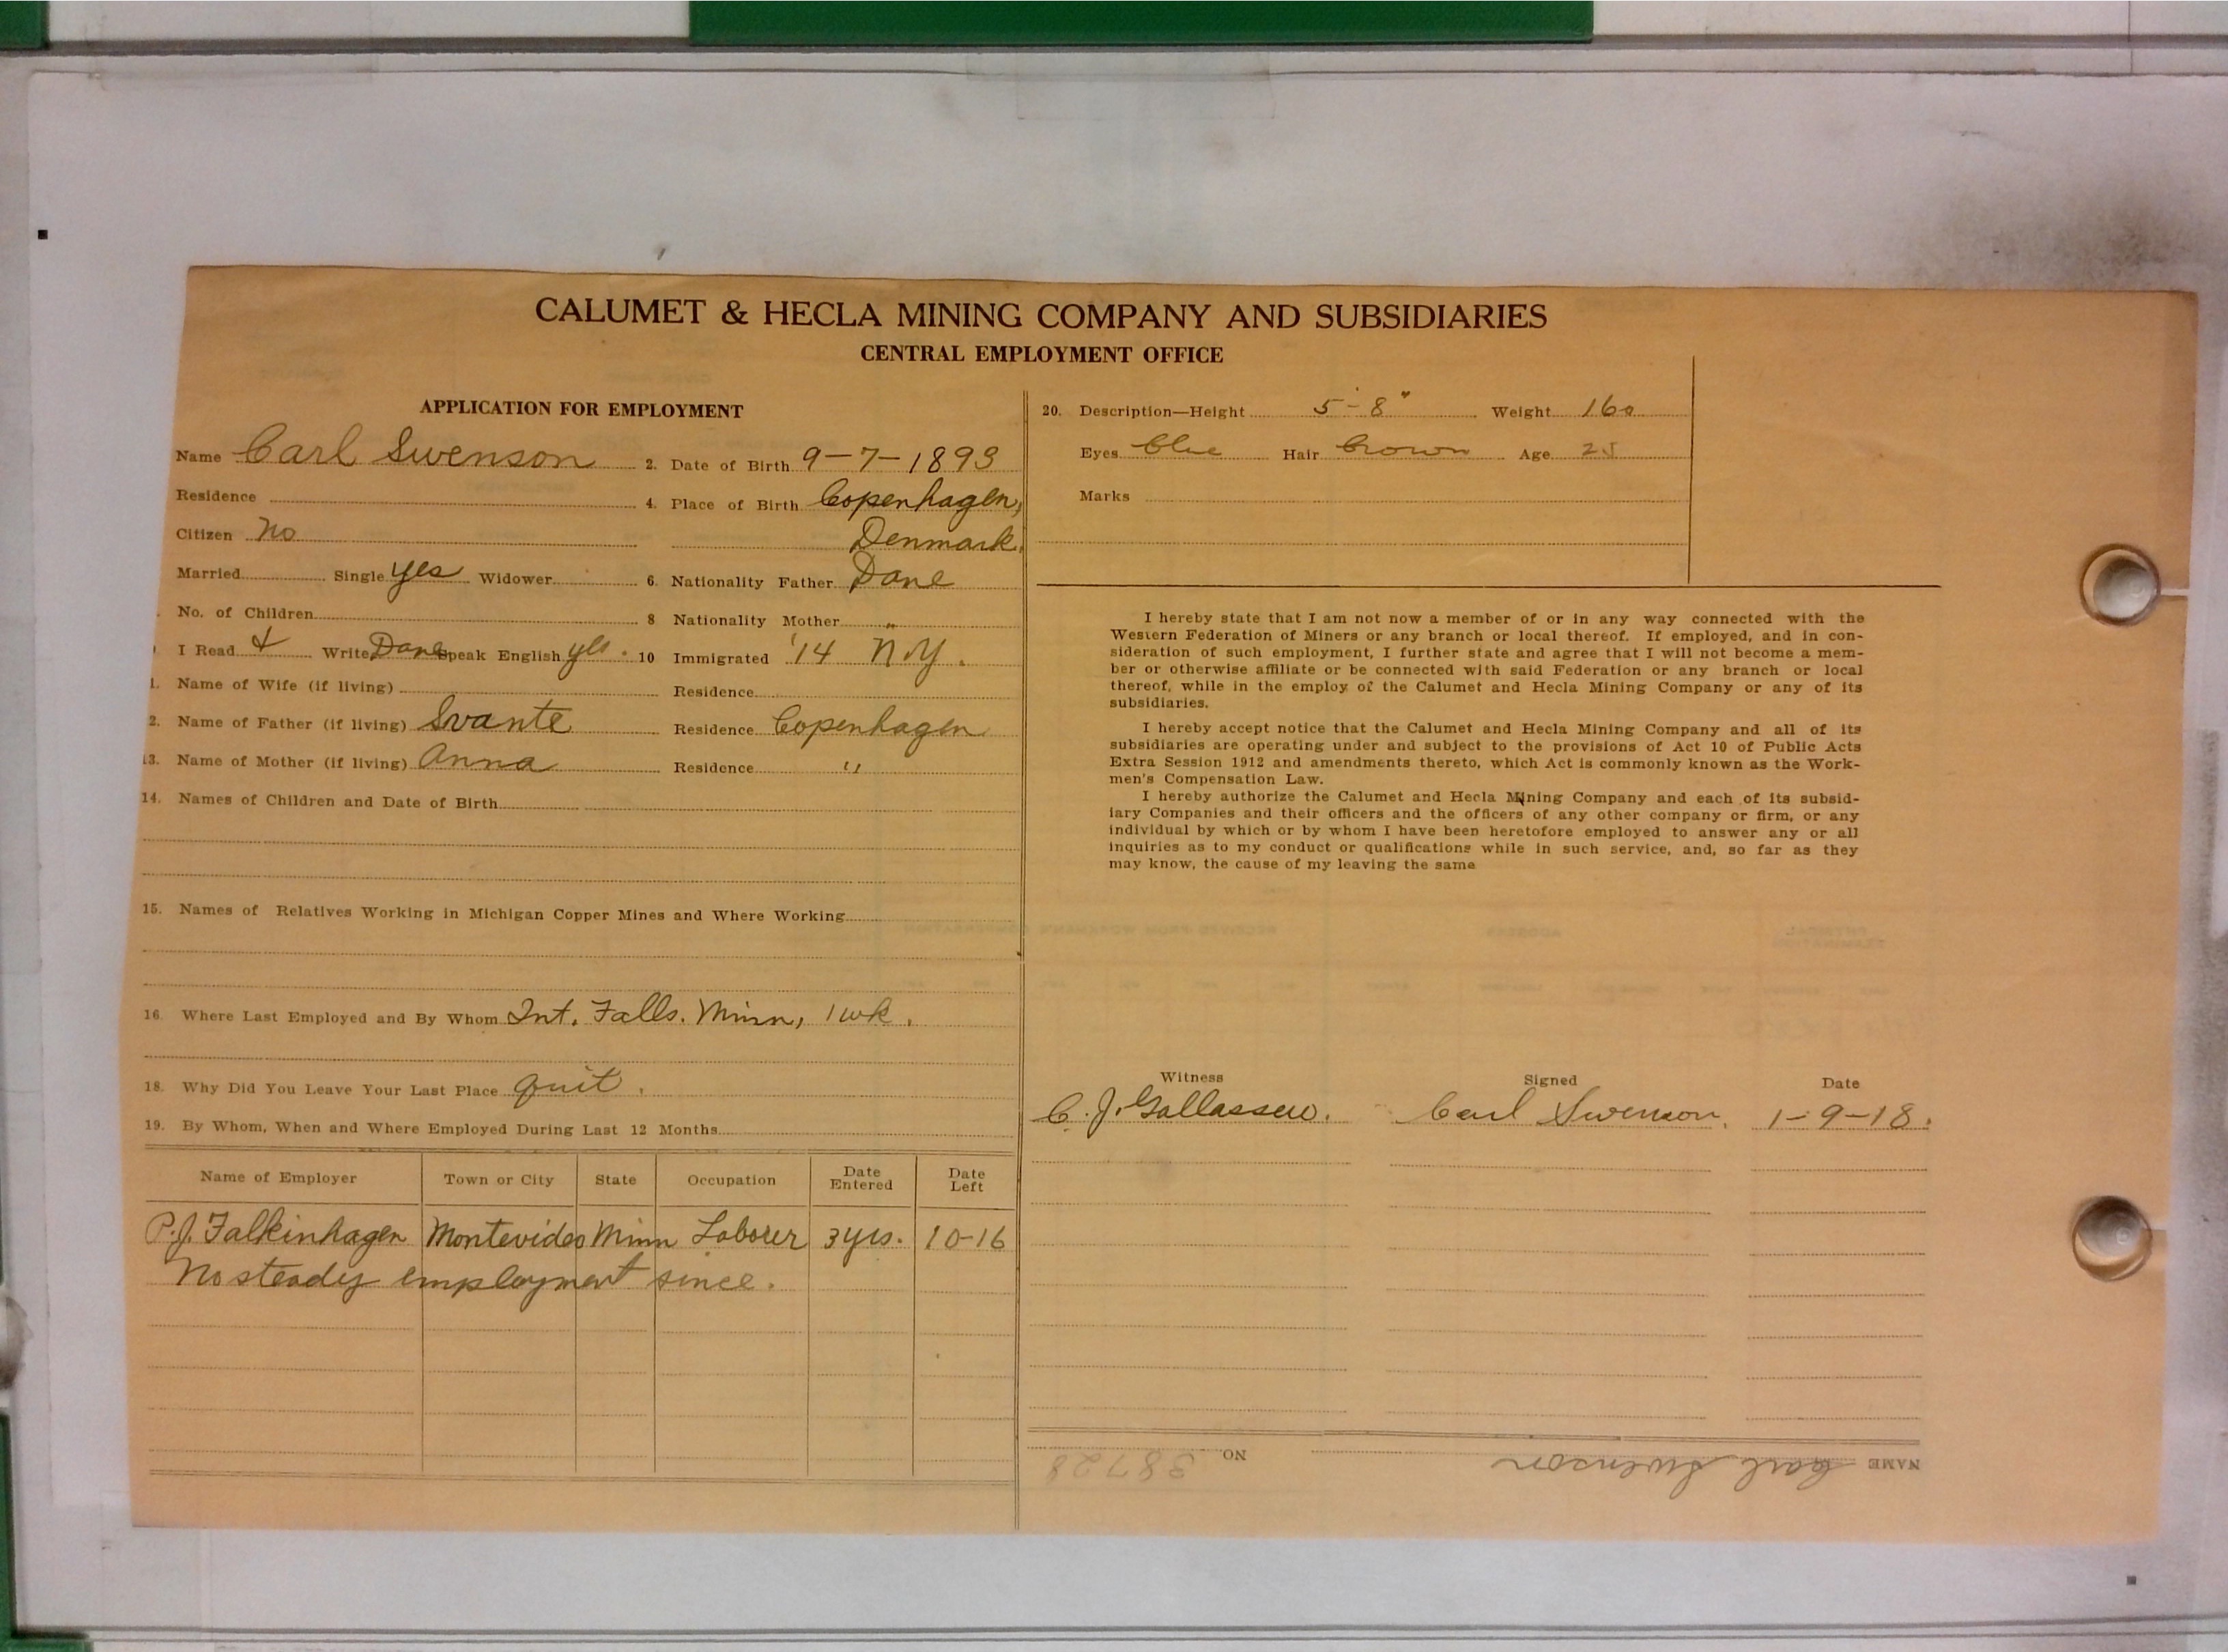 CALUMET & HECLA MINING COMPANY AND SUBSIDIARIES
CENTRAL EMPLOYMENT OFFICE
APPLICATION FOR EMPLOYMENT
Name Carl Swenson 2. Date of Birth 9-7-1893
Residence 4. Place of Birth Copenhagen,
Citizen No Denmark.
Married Single yes Widower 6. Nationality Father Dane
No. of Children 8 Nationality Mother "
I Read & Write Dane Speak English yes. 10 Immigrated '14 N.Y.
1. Name of Wife (if living) Residence
2. Name of Father (if living) Svante Residence Copenhagen
13. Name of Mother (if living) Anna Residence "
14. Names of Children and Date of Birth
15. Names of Relatives Working in Michigan Copper Mines and Where Working
16. Where Last Employed and By Whom Int. Falls. Minn, 1 wk.
18. Why Did You Leave Your Last Place quit.
19. By Whom, When and Where Employed During Last 12 Months
Name of Employer Town or City State Occupation Date Entered Date Left
P.J. Falkinhagen Montevideo Minn Laborer 3 yrs. 10-16
No steady employment since.
20. Description—Height 5'-8" Weight 160
Eyes blue Hair brown Age 25
Marks
I hereby state that I am not now a member of or in any way connected with the
Western Federation of Miners or any branch or local thereof. If employed, and in con-
sideration of such employment, I further state and agree that I will not become a mem-
ber or otherwise affiliate or be connected with said Federation or any branch or local
thereof, while in the employ of the Calumet and Hecla Mining Company or any of its
subsidiaries.
I hereby accept notice that the Calumet and Hecla Mining Company and all of its
subsidiaries are operating under and subject to the provisions of Act 10 of Public Acts
Extra Session 1912 and amendments thereto, which Act is commonly known as the Work-
men's Compensation Law.
I hereby authorize the Calumet and Hecla Mining Company and each of its subsid-
iary Companies and their officers and the officers of any other company or firm, or any
individual by which or by whom I have been heretofore employed to answer any or all
inquiries as to my conduct or qualifications while in such service, and, so far as they
may know, the cause of my leaving the same
Witness Signed Date
C. J. Carl Swenson. 1-9-18.
NAME Carl Swenson NO 38728